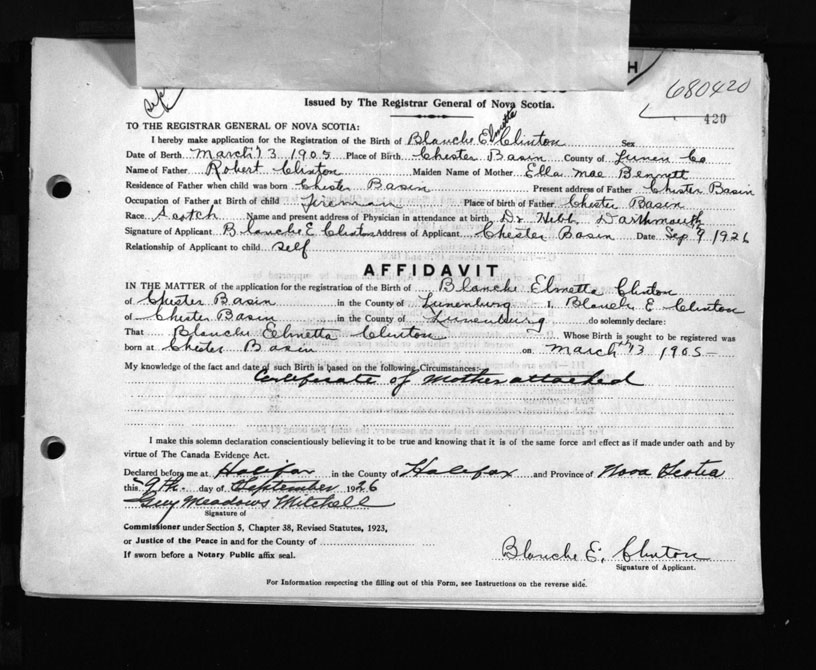 H
680420
Issued by The Registrar General of Nova Scotia.
420
TO THE REGISTRAR GENERAL OF NOVA SCOTIA:
Elmetta
I hereby make application for the Registration of the Birth of Blanche E Clinton Sex
Date of Birth March 13 1905 Place of Birth Chester Basin County of Lunen Co
Name of Father Robert Clinton Maiden Name of Mother Ella Mae Bennett
Residence of Father when child was born Chester Basin Present address of Father Chester Basin
Occupation of Father at Birth of child Fireman Place of birth of Father Chester Basin
Race Scotch Name and present address of Physician in attendance at birth Dr Dartmouth
Signature of Applicant Blanche E Clinton Address of Applicant Chester Basin Date Sep 9 1926
Relationship of Applicant to child self
AFFIDAVIT
IN THE MATTER of the application for the registration of the Birth of Blanche Elmetta Clinton
of Chester Basin in the County of Lunenburg I, Blanche E Clinton
of Chester Basin in the County of Lunenburg do solemnly declare:
That Blanche Elmetta Clinton Whose Birth is sought to be registered was
born at Chester Basin on March 13 1905
My knowledge of the fact and date of such Birth is based on the following Circumstances:-
Certificate of Mother attached
I make this solemn declaration conscientiously believing it to be true and knowing that it is of the same force and effect as if made under oath and by
virtue of The Canada Evidence Act.
Declared before me at Halifax in the County of Halifax and Province of Nova Scotia
this 9th. day of September 1926
Guy Meadows Mitchell
Signature of
Commissioner under Section 5, Chapter 38, Revised Statutes, 1923,
or Justice of the Peace in and for the County of
If sworn before a Notary Public affix seal.
Blanche E. Clinton
Signature of Applicant.
For Information respecting the filling out of this Form, see Instructions on the reverse side.